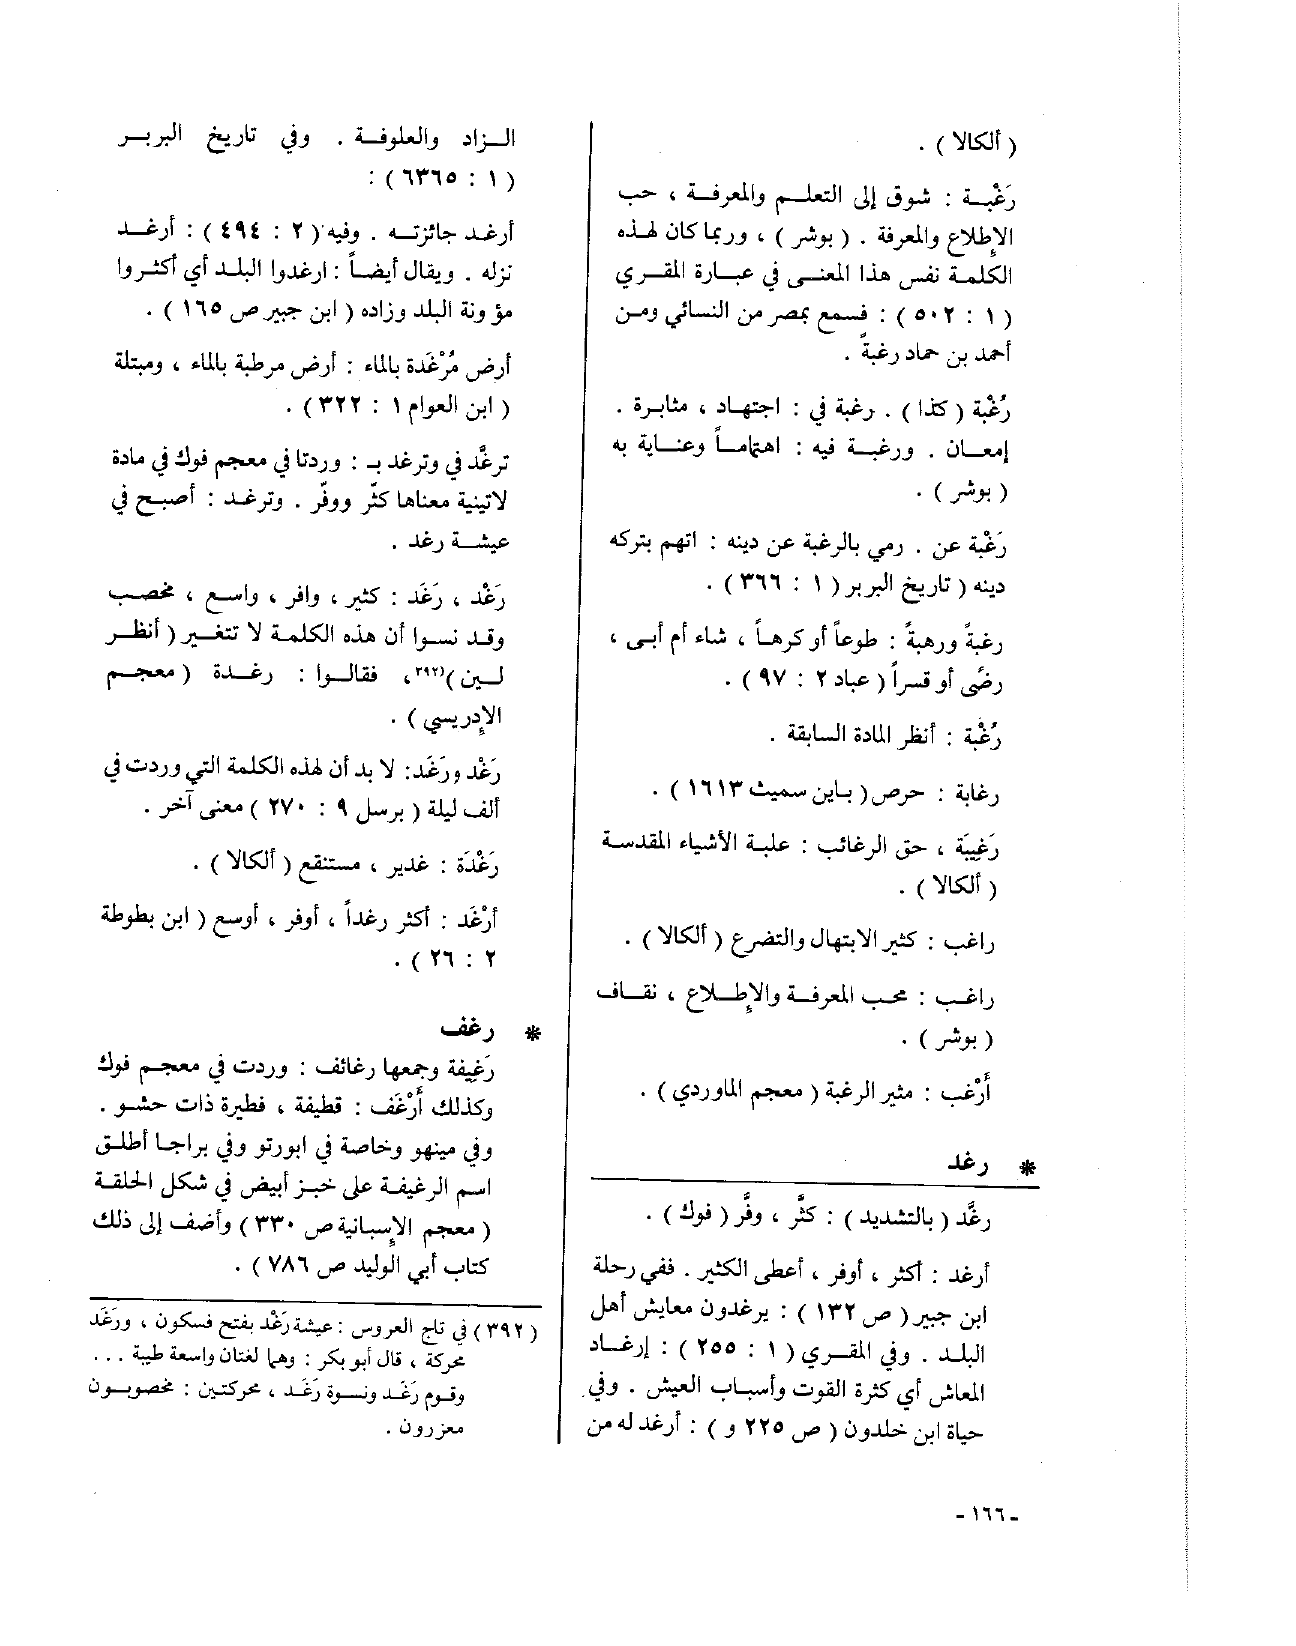 ( ألكالا ) .
رَغْبـة : شوق إلى التعلـم والمعرفـة ، حب
الإطلاع والمعرفة . ( بوشر ) ، وربما كان لهذه
الكلمة نفس هذا المعنـى في عبـارة المقـري
( ١ : ٥٠٢ ) : فسمع بمصر من النسائي ومـن
أحمد بن حماد رغبةً .
رُغْبة ( كذا ) . رغبة في : اجتهـاد ، مثابرة .
إمعـان . ورغبـة فيه : اهتماماً وعنـاية به
( بوشر ) .
رَغْبة عن . رمي بالرغبة عن دينه : اتهم بتركه
دينه ( تاريخ البربر ( ١ : ٣٦٦ ) .
رغبةً ورهبةً : طوعاً أو كرهاً ، شاء أم أبى ،
رضًى أو قسراً ( عباد ٢ : ٩٧ ) .
رُغْبة : أنظر المادة السابقة .
رغابة : حرص ( باين سميث ١٦١٣ ) .
رَغِيبَة ، حق الرغائب : علبة الأشياء المقدسة
( ألكالا ) .
راغب : كثير الابتهال والتضرع ( ألكالا ) .
راغـب : محب المعرفـة والإطـلاع ، نقـاف
( بوشر ) .
أَرْغب : مثير الرغبة ( معجم الماوردي ) .
* رغد
رغَّد ( بالتشديد ) : كثَّر ، وفَّر ( فوك ) .
أرغد : أكثر ، أوفر ، أعطى الكثير . ففي رحلة
ابن جبير ( ص ١٣٢ ) : يرغدون معايش أهل
البلـد . وفي المقـري ( ١ : ٢٥٥ ) : إرغـاد
المعاش أي كثرة القوت وأسبـاب العيش . وفي
حياة ابن خلدون ( ص ٢٢٥ و ) : أرغد له من
الـزاد والعلوفـة . وفي تاريخ البربـر
( ١ : ٦٣٦٥ ) :
أرغـد جائزتـه . وفيه ( ٢ : ٤٩٤ ) : أرغـد
نزله . ويقال أيضـاً : ارغدوا البلـد أي أكثـروا
مؤونة البلد وزاده ( ابن جبير ص ١٦٥ ) .
أرض مُرْغَدة بالماء : أرض مرطبة بالماء ، ومبتلة
( ابن العوام ١ : ٣٢٢ ) .
ترغَّد في وترغد بـ : وردتا في معجم فوك في مادة
لاتينية معناها كثّر ووفّر . وترغـد : أصبـح في
عيشـة رغد .
رَغْد ، رَغَد : كثير ، وافر ، واسـع ، مخصـب
وقـد نسـوا أن هذه الكلمة لا تتغـير ( أنظـر
لـين )(٣٩٢) ، فقالـوا : رغـدة ( معجـم
الإدريسي ) .
رَغْد ورَغَد : لا بد أن لهذه الكلمة التي وردت في
ألف ليلة ( برسل ٩ : ٢٧٠ ) معنى آخر .
رَغْدَة : غدير ، مستنقع ( ألكالا ) .
أرْغَد : أكثر رغداً ، أوفر ، أوسع ( ابن بطوطة
٢ : ٢٦ ) .
* رغف
رَغِيفة وجمعها رغائف : وردت في معجـم فوك
وكذلك أَرْغَف : قطيفة ، فطيرة ذات حشـو .
وفي مينهو وخاصة في ابورتو وفي براجـا أطلـق
اسم الرغيفة على خبـز أبيض في شكل الحلقـة
( معجم الإسبانية ص ٣٣٠ ) وأضف إلى ذلك
كتاب أبي الوليد ص ٧٨٦ ) .
( ٣٩٢ ) في تاج العروس : عيشة رَغْد بفتح فسكون ، ورَغَد
محركة ، قال أبو بكر : وهما لغتان واسعة طيبة ...
وقـوم رَغَـد ونسـوة رَغَـد ، محركتـين : مخصوبـون
معزرون .
- ١٦٦ -